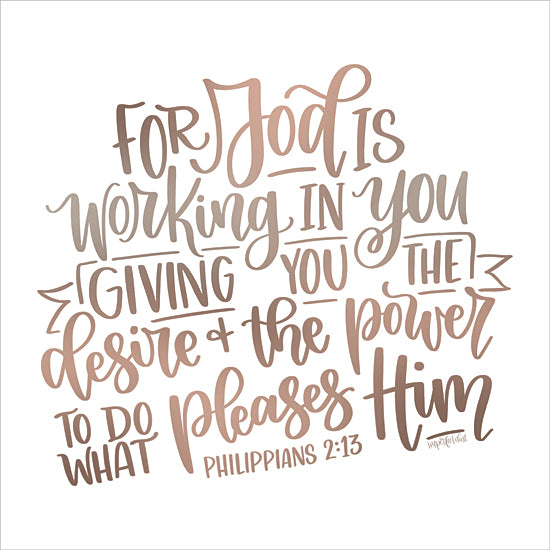 FOR God IS
working IN you
GIVING YOU THE
desire + the power
TO DO WHAT pleases Him
PHILIPPIANS 2:13
imperfect dust